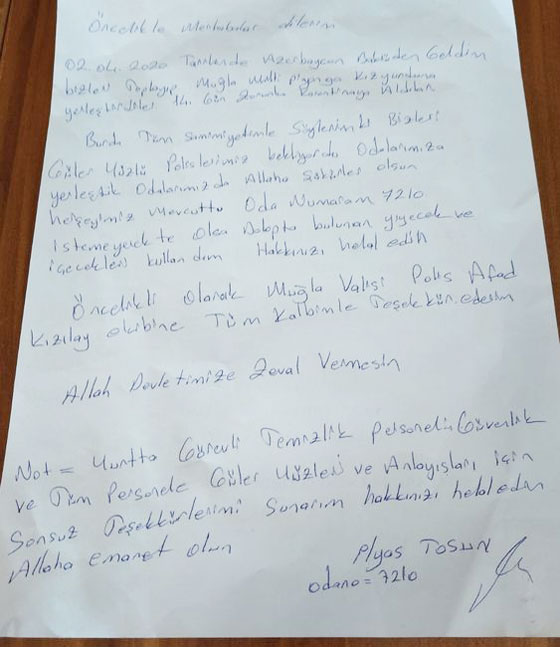 Öncelikle Merhabalar dilerim
02.04.2020 Tarihinde Azerbaycan Baküden Geldim
bizleri Toplayıp Muğla Milli piyango Kız yurduna
yerleştirdiler 14 Gün Zorunlu Karantinaya Aldılar
Burda Tüm Samimiyetimle Söylerimki Bizleri
Güler Yüzlü Polislerimiz bekliyordu Odalarımıza
yerleştik Odalarımızda Allaha Şükürler olsun
herşeyimiz Mevcuttu Oda Numaram 7210
İstemeyerekte Olsa Dolapta bulunan yiyecek ve
içecekleri kullandım Hakkınızı helal edin
Öncelikli Olarak Muğla Valisi Polis Afad
Kızılay ekibine Tüm Kalbimle Teşekkür ederim
Allah Devletimize Zeval Vermesin
Not = Yurtta Görevli Temizlik personeli Güvenlik
ve Tüm Personele Güler Yüzleri ve Anlayışları için
Sonsuz Teşekkürlerimi Sunarım hakkınızı helal edin
Allaha emanet olun
İlyas TOSUN
odano = 7210